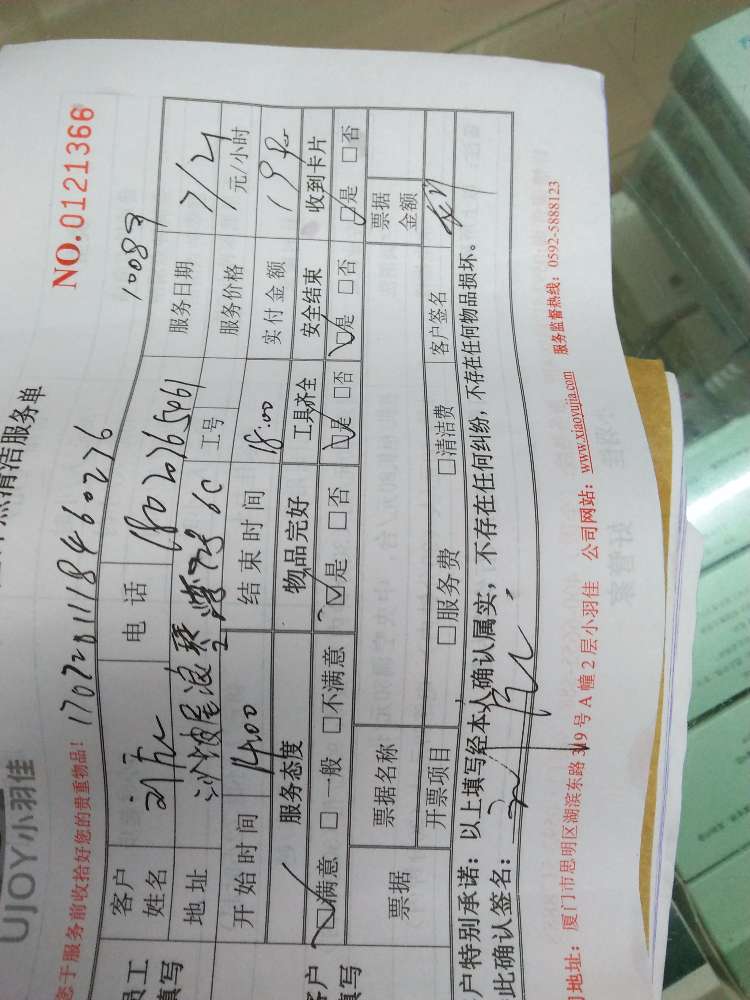 清洁服务单
UJOY小羽佳
NO.0121366
您于服务前收拾好您的贵重物品！ 1707281118460276 10089
员工
填写
客户
姓名 电话 18020765461 服务日期 7/21
地址 工号 服务价格 元/小时
开始时间 14:00 结束时间 18:00 实付金额
客户
填写
服务态度 物品完好 工具齐全 安全结束 收到卡片
☑满意 □一般 □不满意 ☑是 □否 ☑是 □否 ☑是 □否 ☑是 □否
票据 票据名称 票据
金额
开票项目 □服务费 □清洁费 客户签名
户特别承诺：以上填写经本人确认属实，不存在任何纠纷，不存在任何物品损坏。
此确认签名：
地址：厦门市思明区湖滨东路319号A幢2层小羽佳 公司网站：www.xiaoyujia.com 服务监督热线：0592-5888123